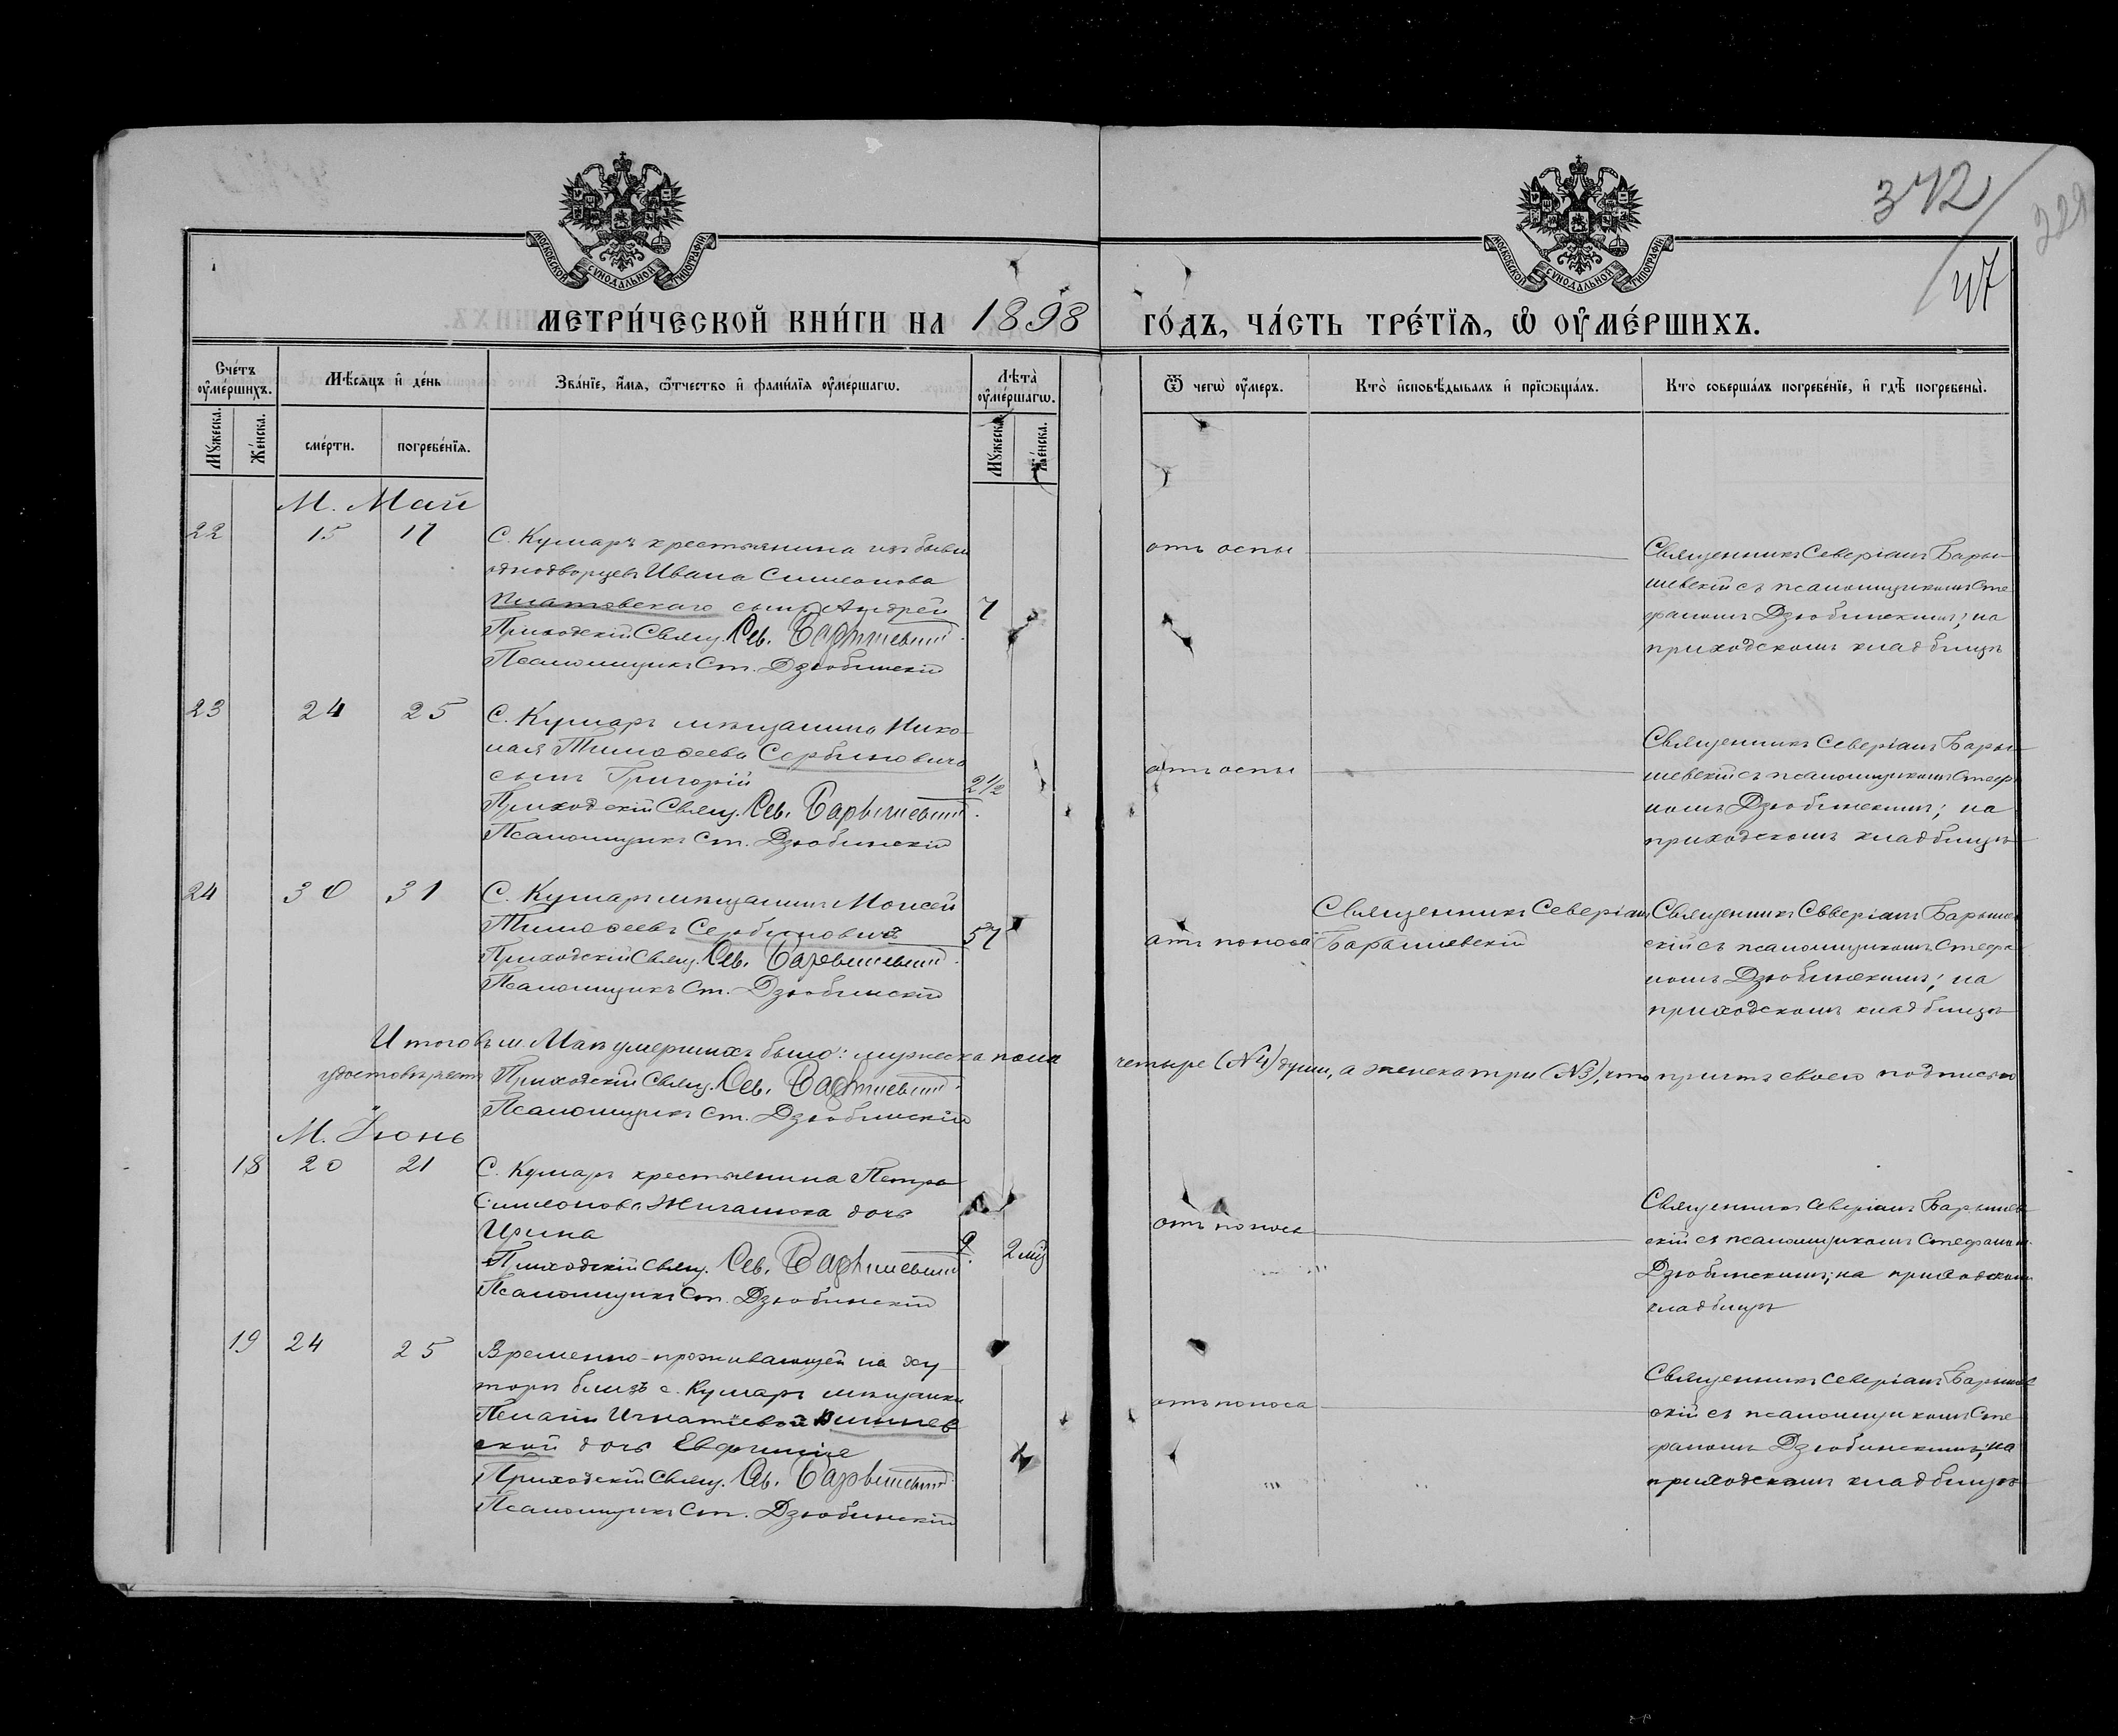 342
229
47
МОСКОВСКОЙ СУНОДАЛЬНОЙ ТИПОГРАФІИ
МОСКОВСКОЙ СУНОДАЛЬНОЙ ТИПОГРАФІИ
МЕТРИ́ЧЕСКОЙ КНИ́ГИ НА 1898 ГО́ДЪ, ЧА́СТЬ ТРЕ́ТЇѦ, Ѽ ОУ҆МЕ́РШИХЪ.
Сче́тъ оу҆ме́ршихъ.
Мѣ́сѧцъ и҆ де́нь
Зва́нїе, и҆́мѧ, ѻ҆́тчество и҆ фами́лїѧ оу҆ме́ршагѡ.
Лѣта̀ оу҆ме́ршагѡ.
Ѿ чегѡ̀ оу҆́меръ.
Кто̀ и҆сповѣ́дывалъ и҆ прїѡбща́лъ.
Кто̀ соверша́лъ погребе́нїе, и҆ гдѣ̀ погребены̀.
Мꙋ́жеска.
Же́нска.
сме́рти.
погребе́нїѧ.
Мꙋ́жеска.
Же́нска.
М. Май
22 15 17
С. Кумаръ крестьянина изъ бывш
однодворцевъ Ивана Симеонова
сынъ Андрей 7
Приходскій Свящ. Сев. Барышевскій
Псаломщикъ Ст. Дзюбинскій
отъ оспы
Священникъ Северіанъ Бары-
шевскій съ псаломщикомъ Сте
фаномъ Дзюбинскимъ; на
приходскомъ кладбищѣ
23 24 25
С. Кумаръ мѣщанина Нико-
лая Тимоѳеева Сербиновича
сынъ Григорій 2½
Приходскій Свящ. Сев. Барышевскій
Псаломщикъ Ст. Дзюбинскій
отъ оспы
Священникъ Северіанъ Бары-
шевскій съ псаломщикомъ Стефа
номъ Дзюбинскимъ; на
приходскомъ кладбищѣ
24 30 31
С. Кумаръ мѣщанинъ Моисей
Тимоѳеевъ Сербиновичъ 57
Приходскій Свящ. Сев. Барышевскій
Псаломщикъ Ст. Дзюбинскій
отъ поноса
Священникъ Северіанъ
Барышевскій
Священникъ Северіанъ Барышев
скій съ псаломщикомъ Стефа
номъ Дзюбинскимъ; на
приходскомъ кладбищѣ
Итого въ м. Маѣ умершихъ было: мужеска пола четыре (№ 4) души, а женска три (№ 3), что причтъ своею подписью
удостовѣряетъ Приходскій Свящ. Сев. Барышевскій
Псаломщикъ Ст. Дзюбинскій
М. Іюнь
18 20 21
С. Кумаръ крестьянина Петра
Симеонова дочь
Ирина 2 мѣс
Приходскій Свящ. Сев. Барышевскій
Псаломщикъ Ст. Дзюбинскій
отъ поноса
Священникъ Северіанъ Барышев
скій съ псаломщикомъ Стефаномъ
Дзюбинскимъ; на приходскомъ
кладбищѣ
19 24 25
Временно-проживающей на ху
торѣ близъ с. Кумаръ мѣщанки
Пелагіи Игнатіевой
ской дочь Евфимія 1
Приходскій Свящ. Сев. Барышевскій
Псаломщикъ Ст. Дзюбинскій
отъ поноса
Священникъ Северіанъ Барышев
скій съ псаломщикомъ Сте
фаномъ Дзюбинскимъ; на
приходскомъ кладбищѣ